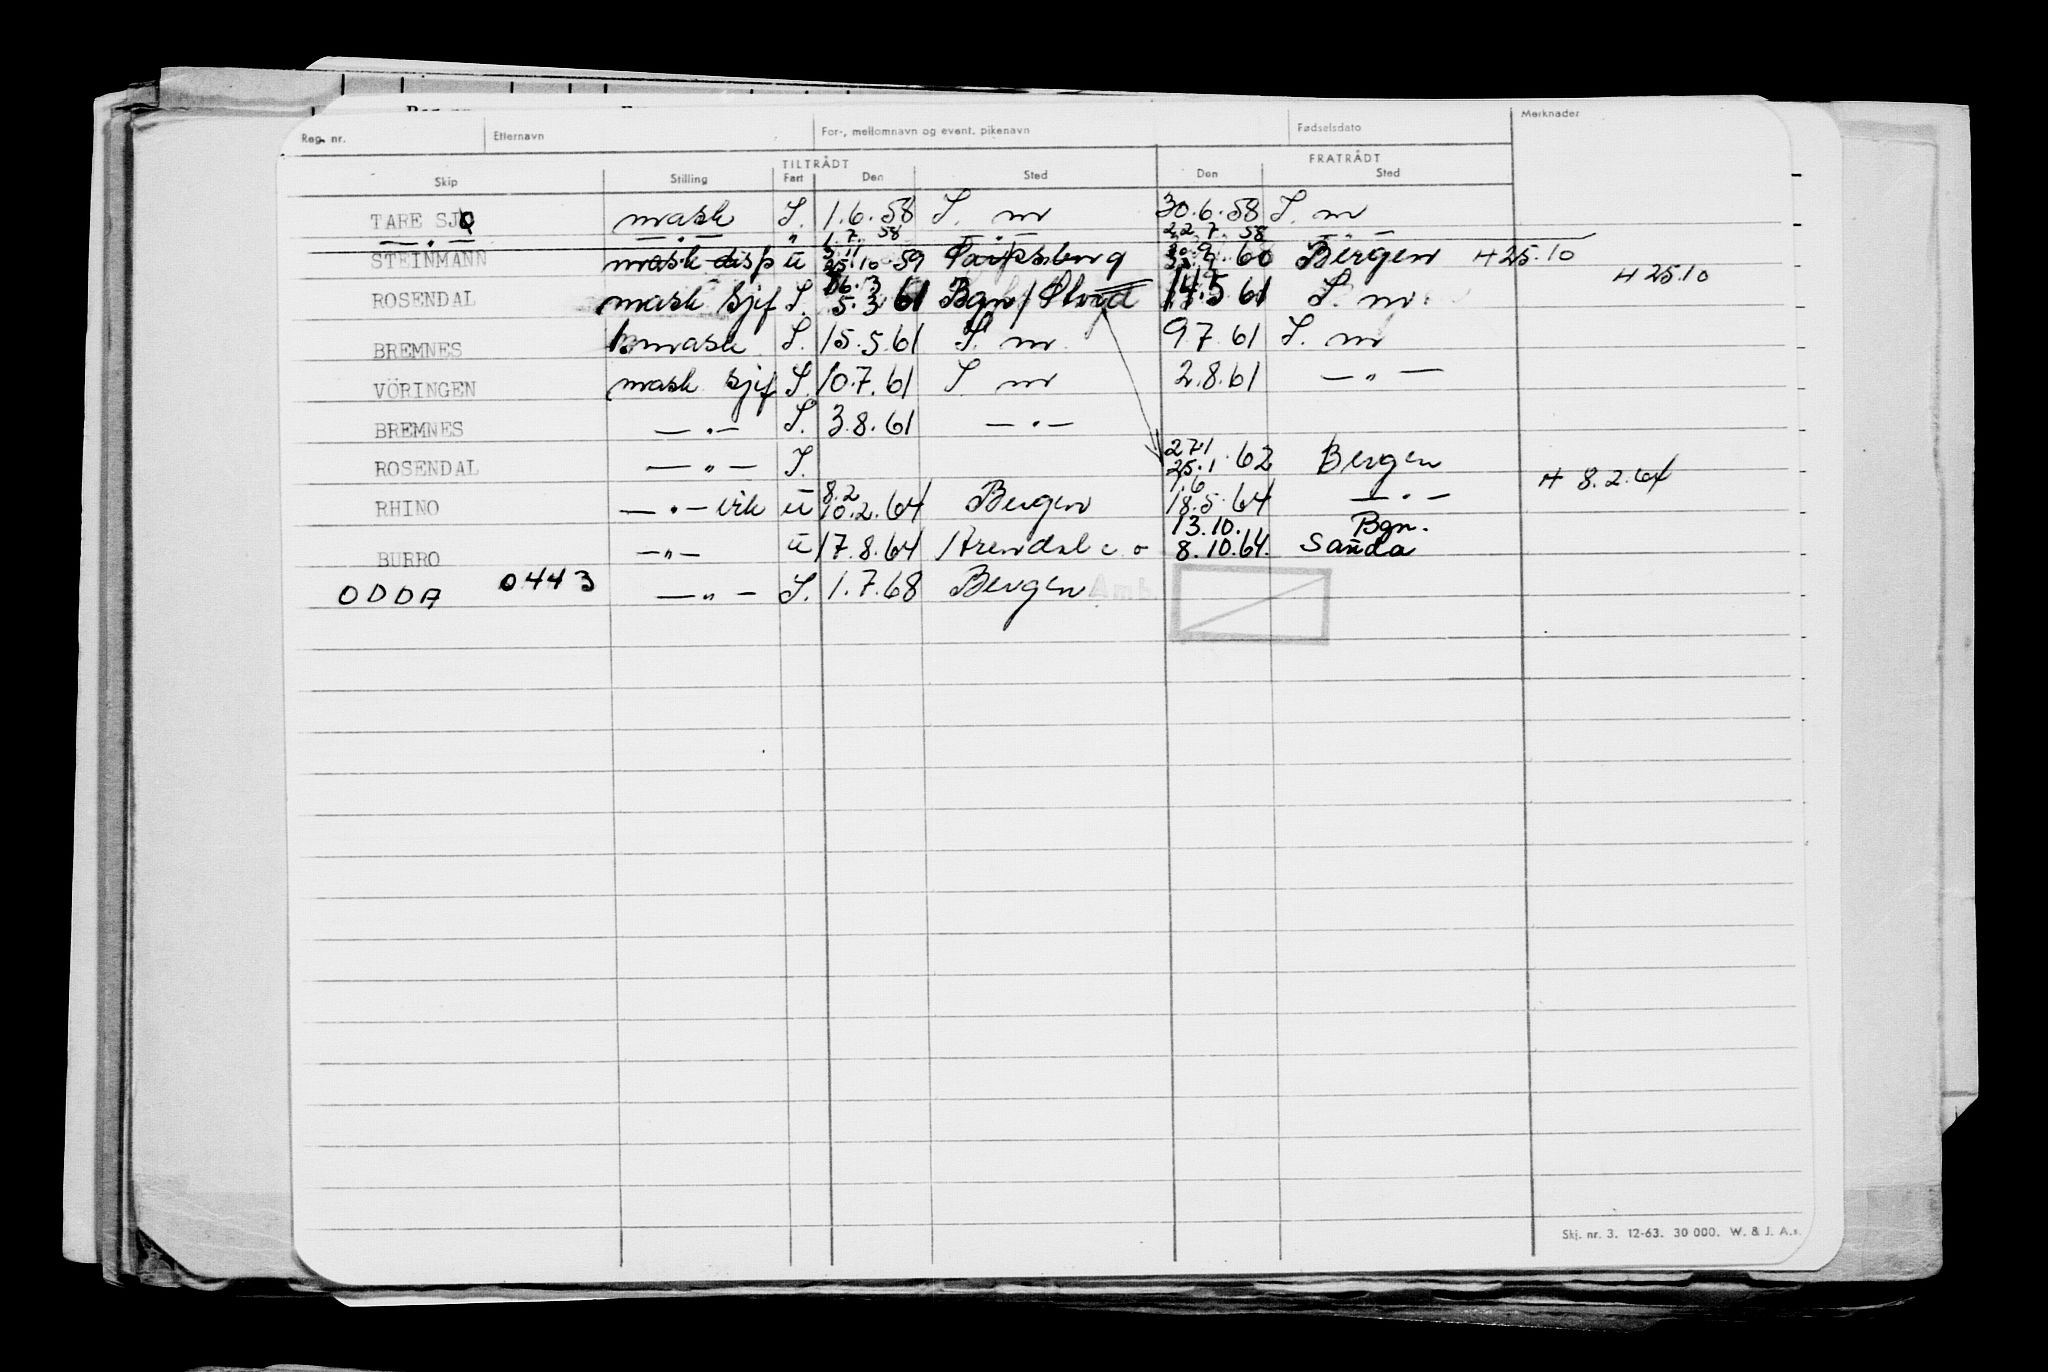 Reg. nr. Etternavn For-, mellomnavn og event. pikenavn Fødselsdato Merknader
TILTRÅDT FRATRÅDT
Skip Stilling Fart Den Sted Den Sted
TARE SJØ mask S. 1.6.58 S. nr 30.6.58 S. nr
— " — — " — " 1.7.58 — " — 22.7.58 — " —
STEINMANN mask disp u 25.10.59 Sarpsborg 30.9.60 Bergen H 25.10
H 25.10
ROSENDAL mask sjef S. 5.3.61 Bgn/ 14.5.61 S. nr
BREMNES mask S. 15.5.61 S. nr 9.7.61 S. nr
VÖRINGEN mask sjef S. 10.7.61 S nr 2.8.61 — " —
BREMNES — " — S. 3.8.61 — " —
27.1
ROSENDAL — " — S. 25.1.62 Bergen
8.2 1.6 H 8.2.64
RHINO — " — vik u 10.2.64 Bergen 18.5.64 — " —
13.10. Bgn.
BURRO — " — u 17.8.64 Arendal c o 8.10.64. Sauda
ODDA 0443 — " — S. 1.7.68 Bergen
Skj. nr. 3. 12-63. 30 000. W. & J. A.s.